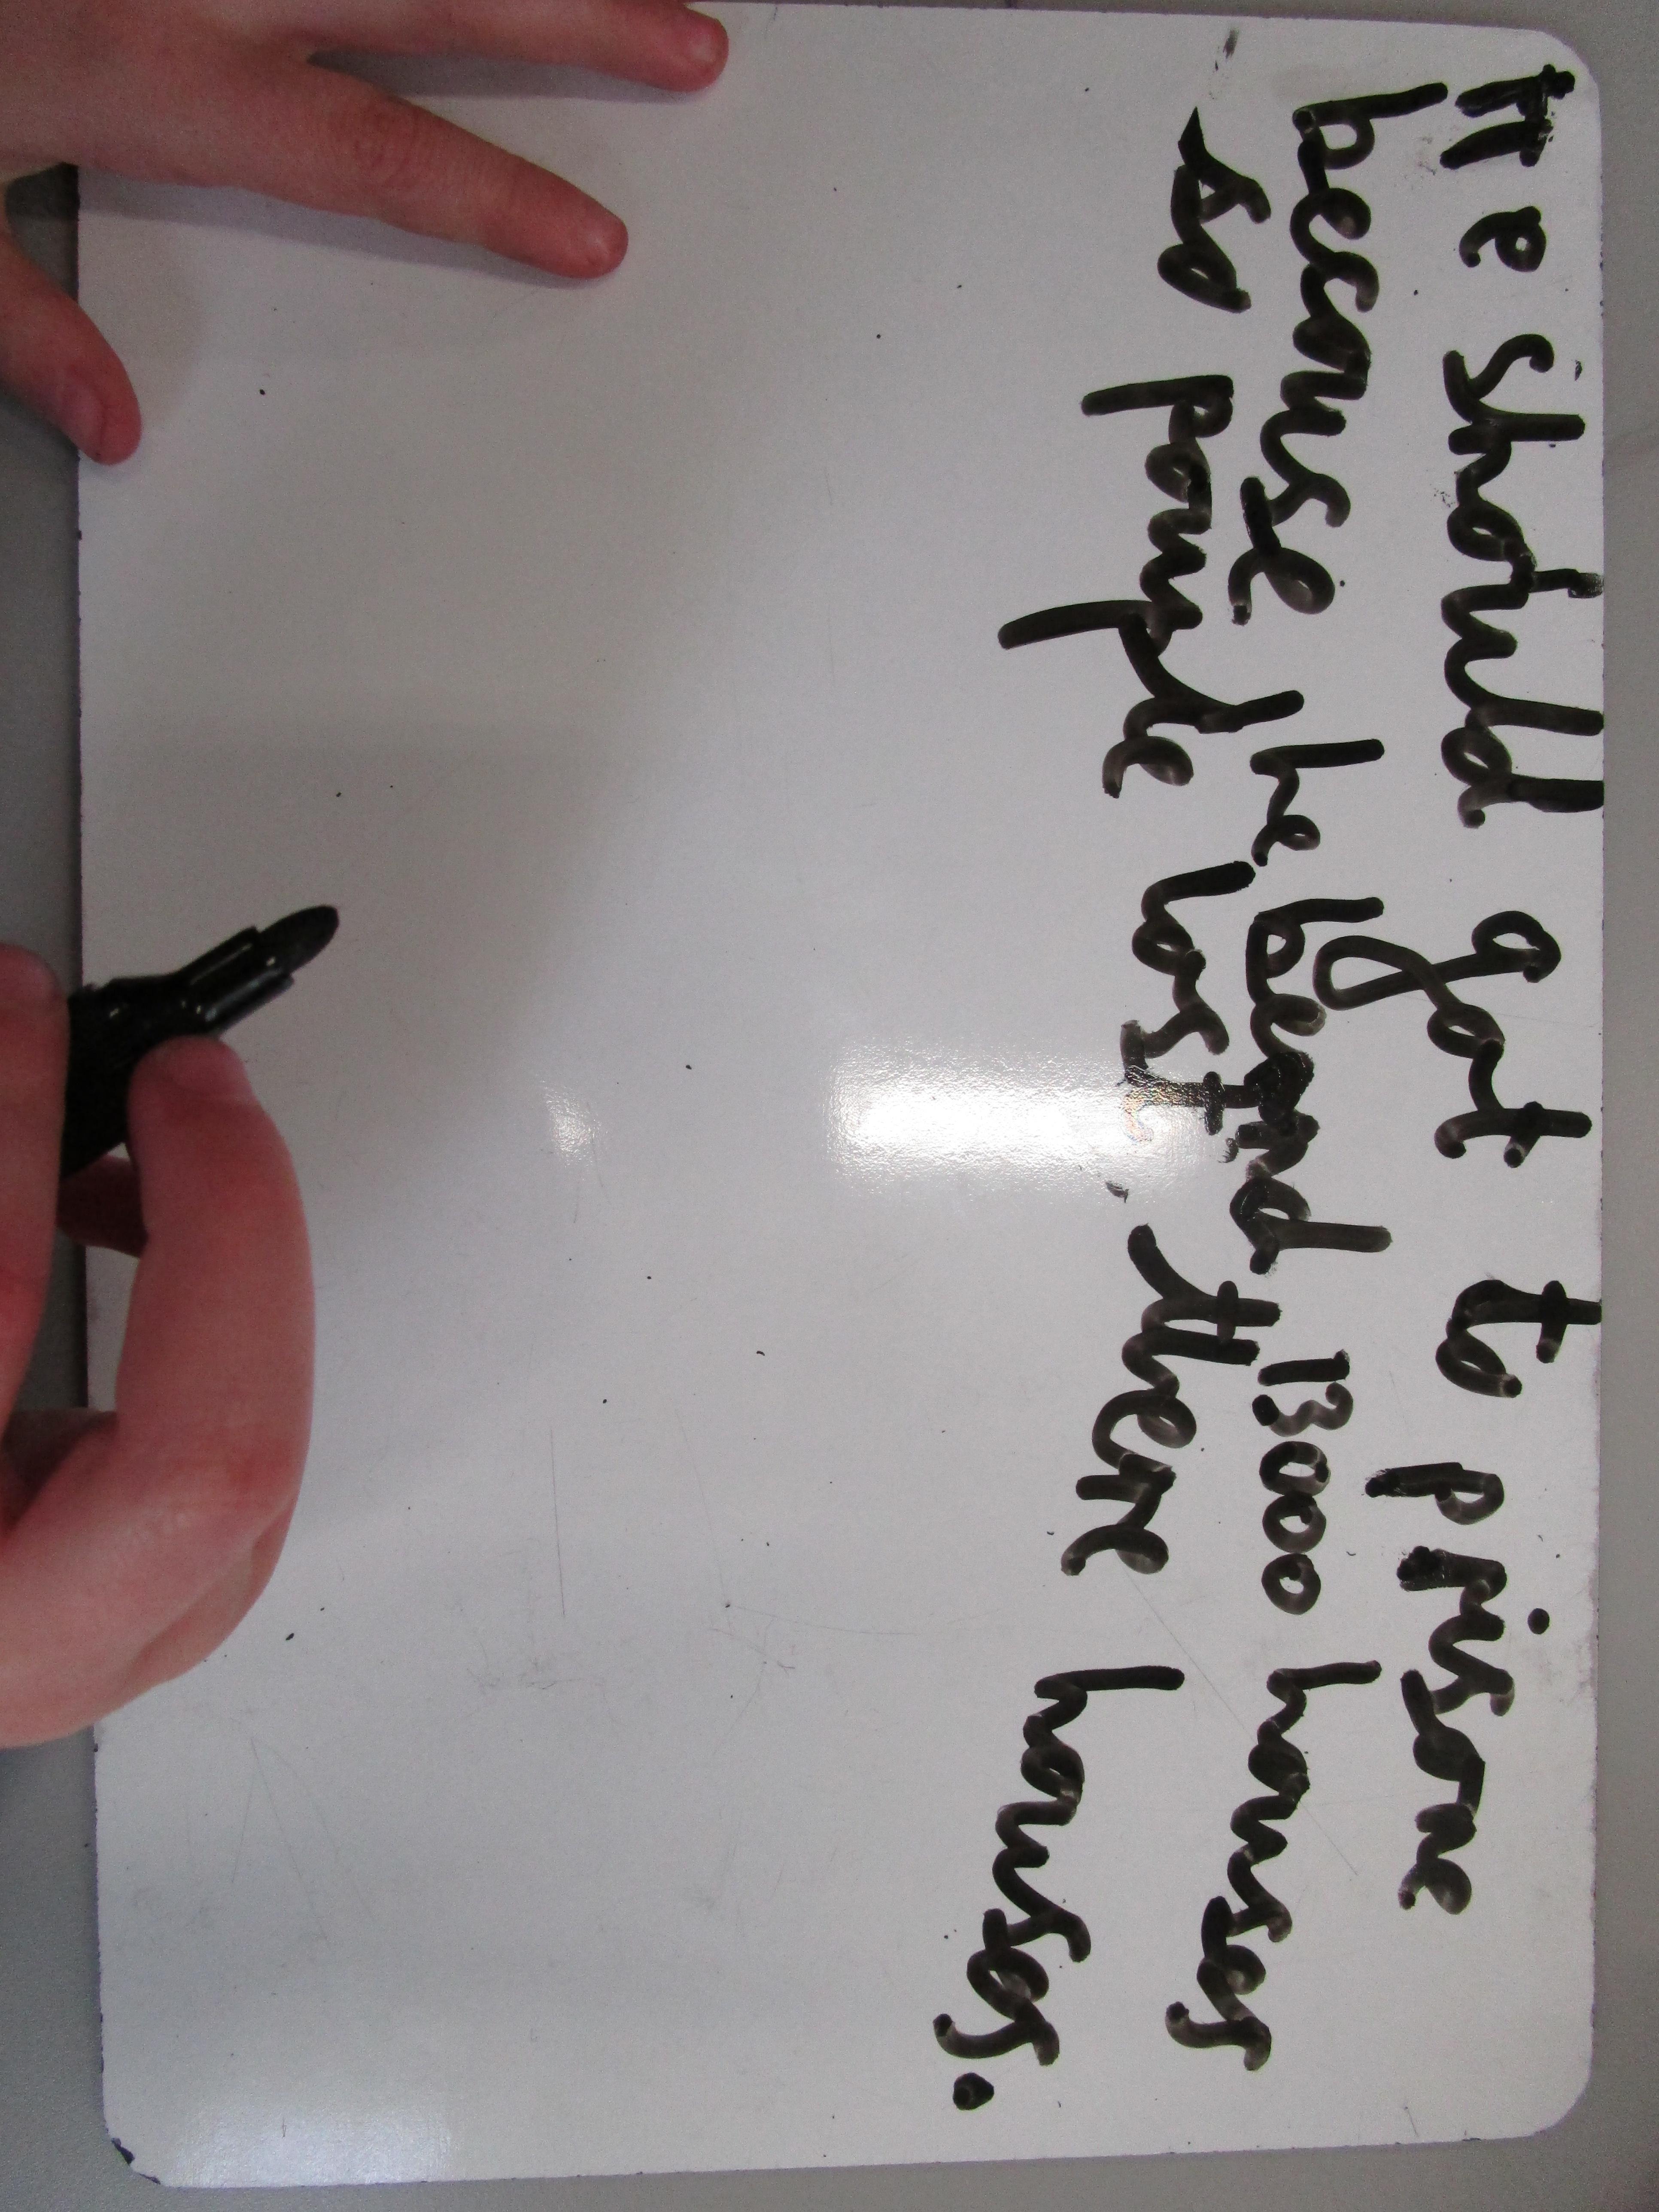 He should got to prisone
because he 13000 houses
so pouple lost there houses.